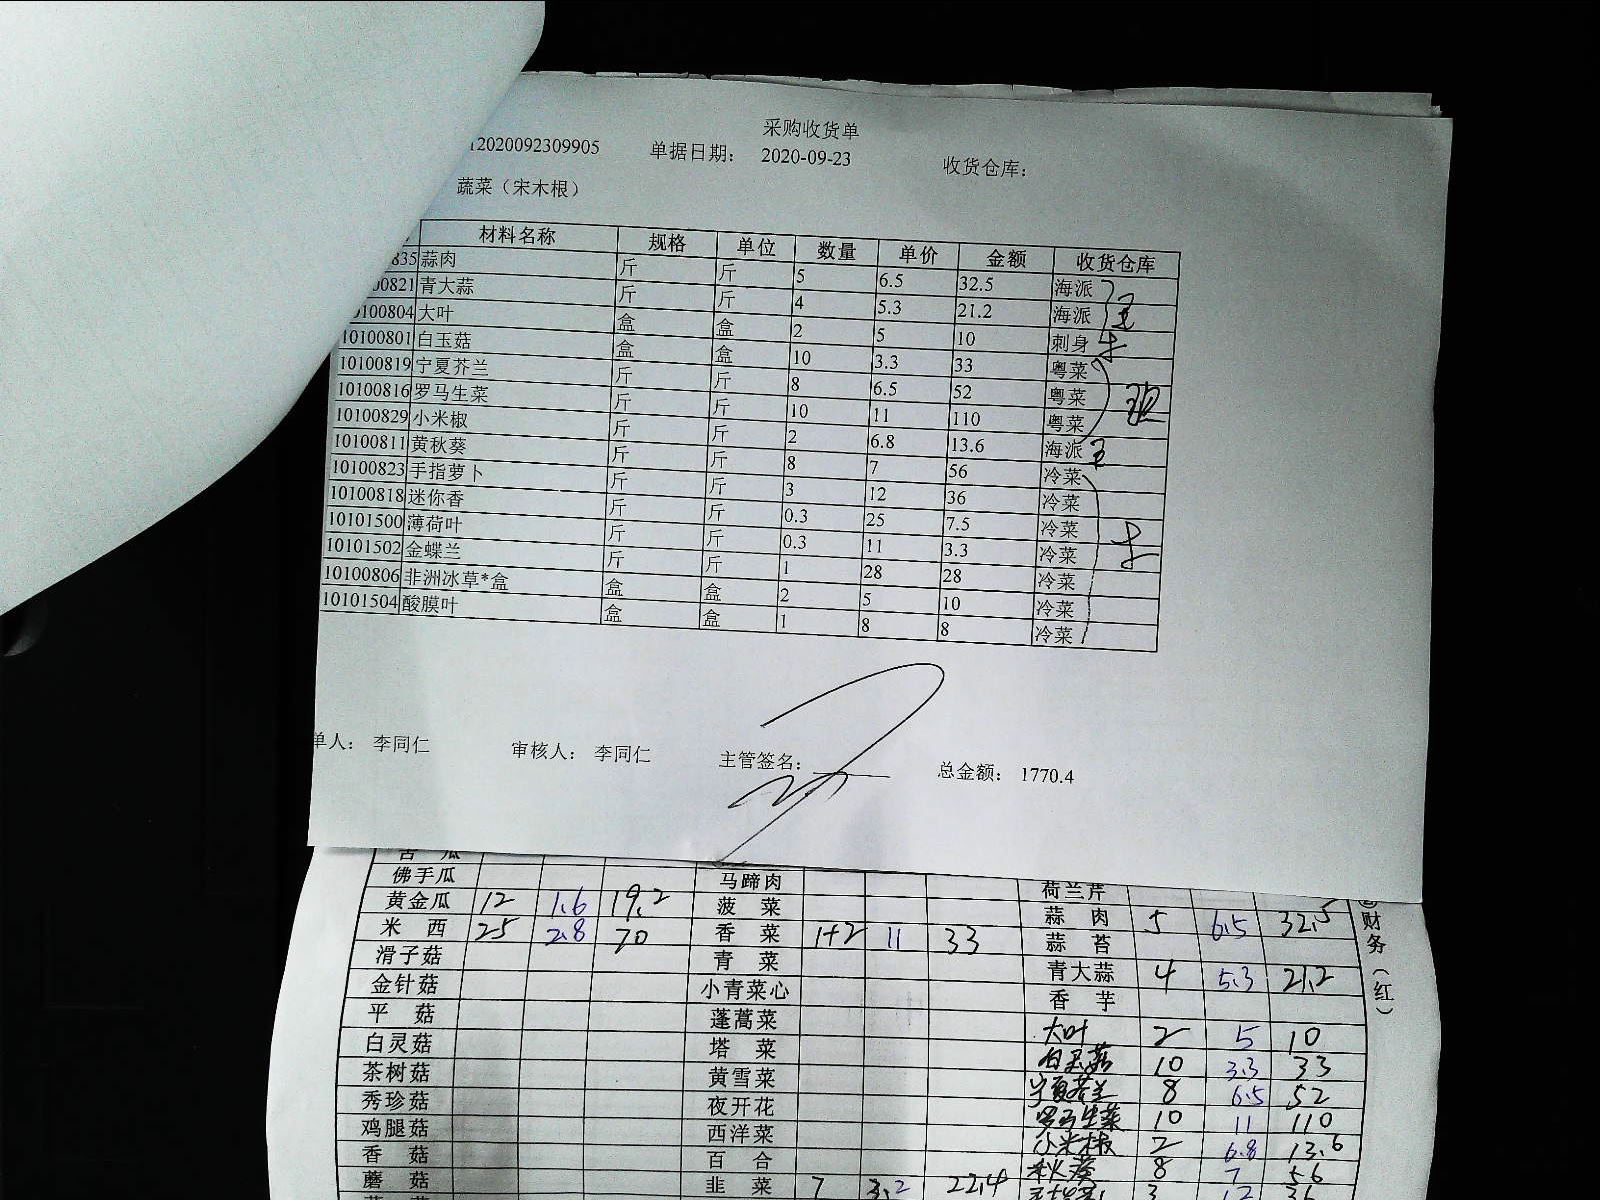 采购收货单
12020092309905 单据日期: 2020-09-23 收货仓库:
蔬菜（宋木根）
材料名称 规格 单位 数量 单价 金额 收货仓库
835 蒜肉 斤 斤 5 6.5 32.5 海派
00821 青大蒜 斤 斤 4 5.3 21.2 海派
0100804 大叶 盒 盒 2 5 10 刺身
10100801 白玉菇 盒 盒 10 3.3 33 粤菜
10100819 宁夏芥兰 斤 斤 8 6.5 52 粤菜
10100816 罗马生菜 斤 斤 10 11 110 粤菜
10100829 小米椒 斤 斤 2 6.8 13.6 海派
10100811 黄秋葵 斤 斤 8 7 56 冷菜
10100823 手指萝卜 斤 斤 3 12 36 冷菜
10100818 迷你香 斤 斤 0.3 25 7.5 冷菜
10101500 薄荷叶 斤 斤 0.3 11 3.3 冷菜
10101502 金蝶兰 斤 斤 1 28 28 冷菜
10100806 非洲冰草*盒 盒 盒 2 5 10 冷菜
10101504 酸膜叶 盒 盒 1 8 8 冷菜
单人: 李同仁 审核人: 李同仁 主管签名: 总金额: 1770.4
苦 瓜
佛手瓜 马蹄肉 荷兰芹
黄金瓜 12 1.6 19.2 菠 菜 蒜 肉 5 6.5 32.5
米 西 25 2.8 70 香 菜 1+2 11 33 蒜 苔
滑子菇 青 菜 青大蒜 4 5.3 21.2
金针菇 小青菜心 香 芋
平 菇 蓬蒿菜 大叶 2 5 10
白灵菇 塔 菜 白玉菇 10 3.3 33
茶树菇 黄雪菜 宁夏芥兰 8 6.5 52
秀珍菇 夜开花 罗马生菜 10 11 110
鸡腿菇 西洋菜 小米椒 2 6.8 13.6
香 菇 百 合 秋葵 8 7 56
蘑 菇 韭 菜 7 3.2 22.4 3 12 36
财务（红）